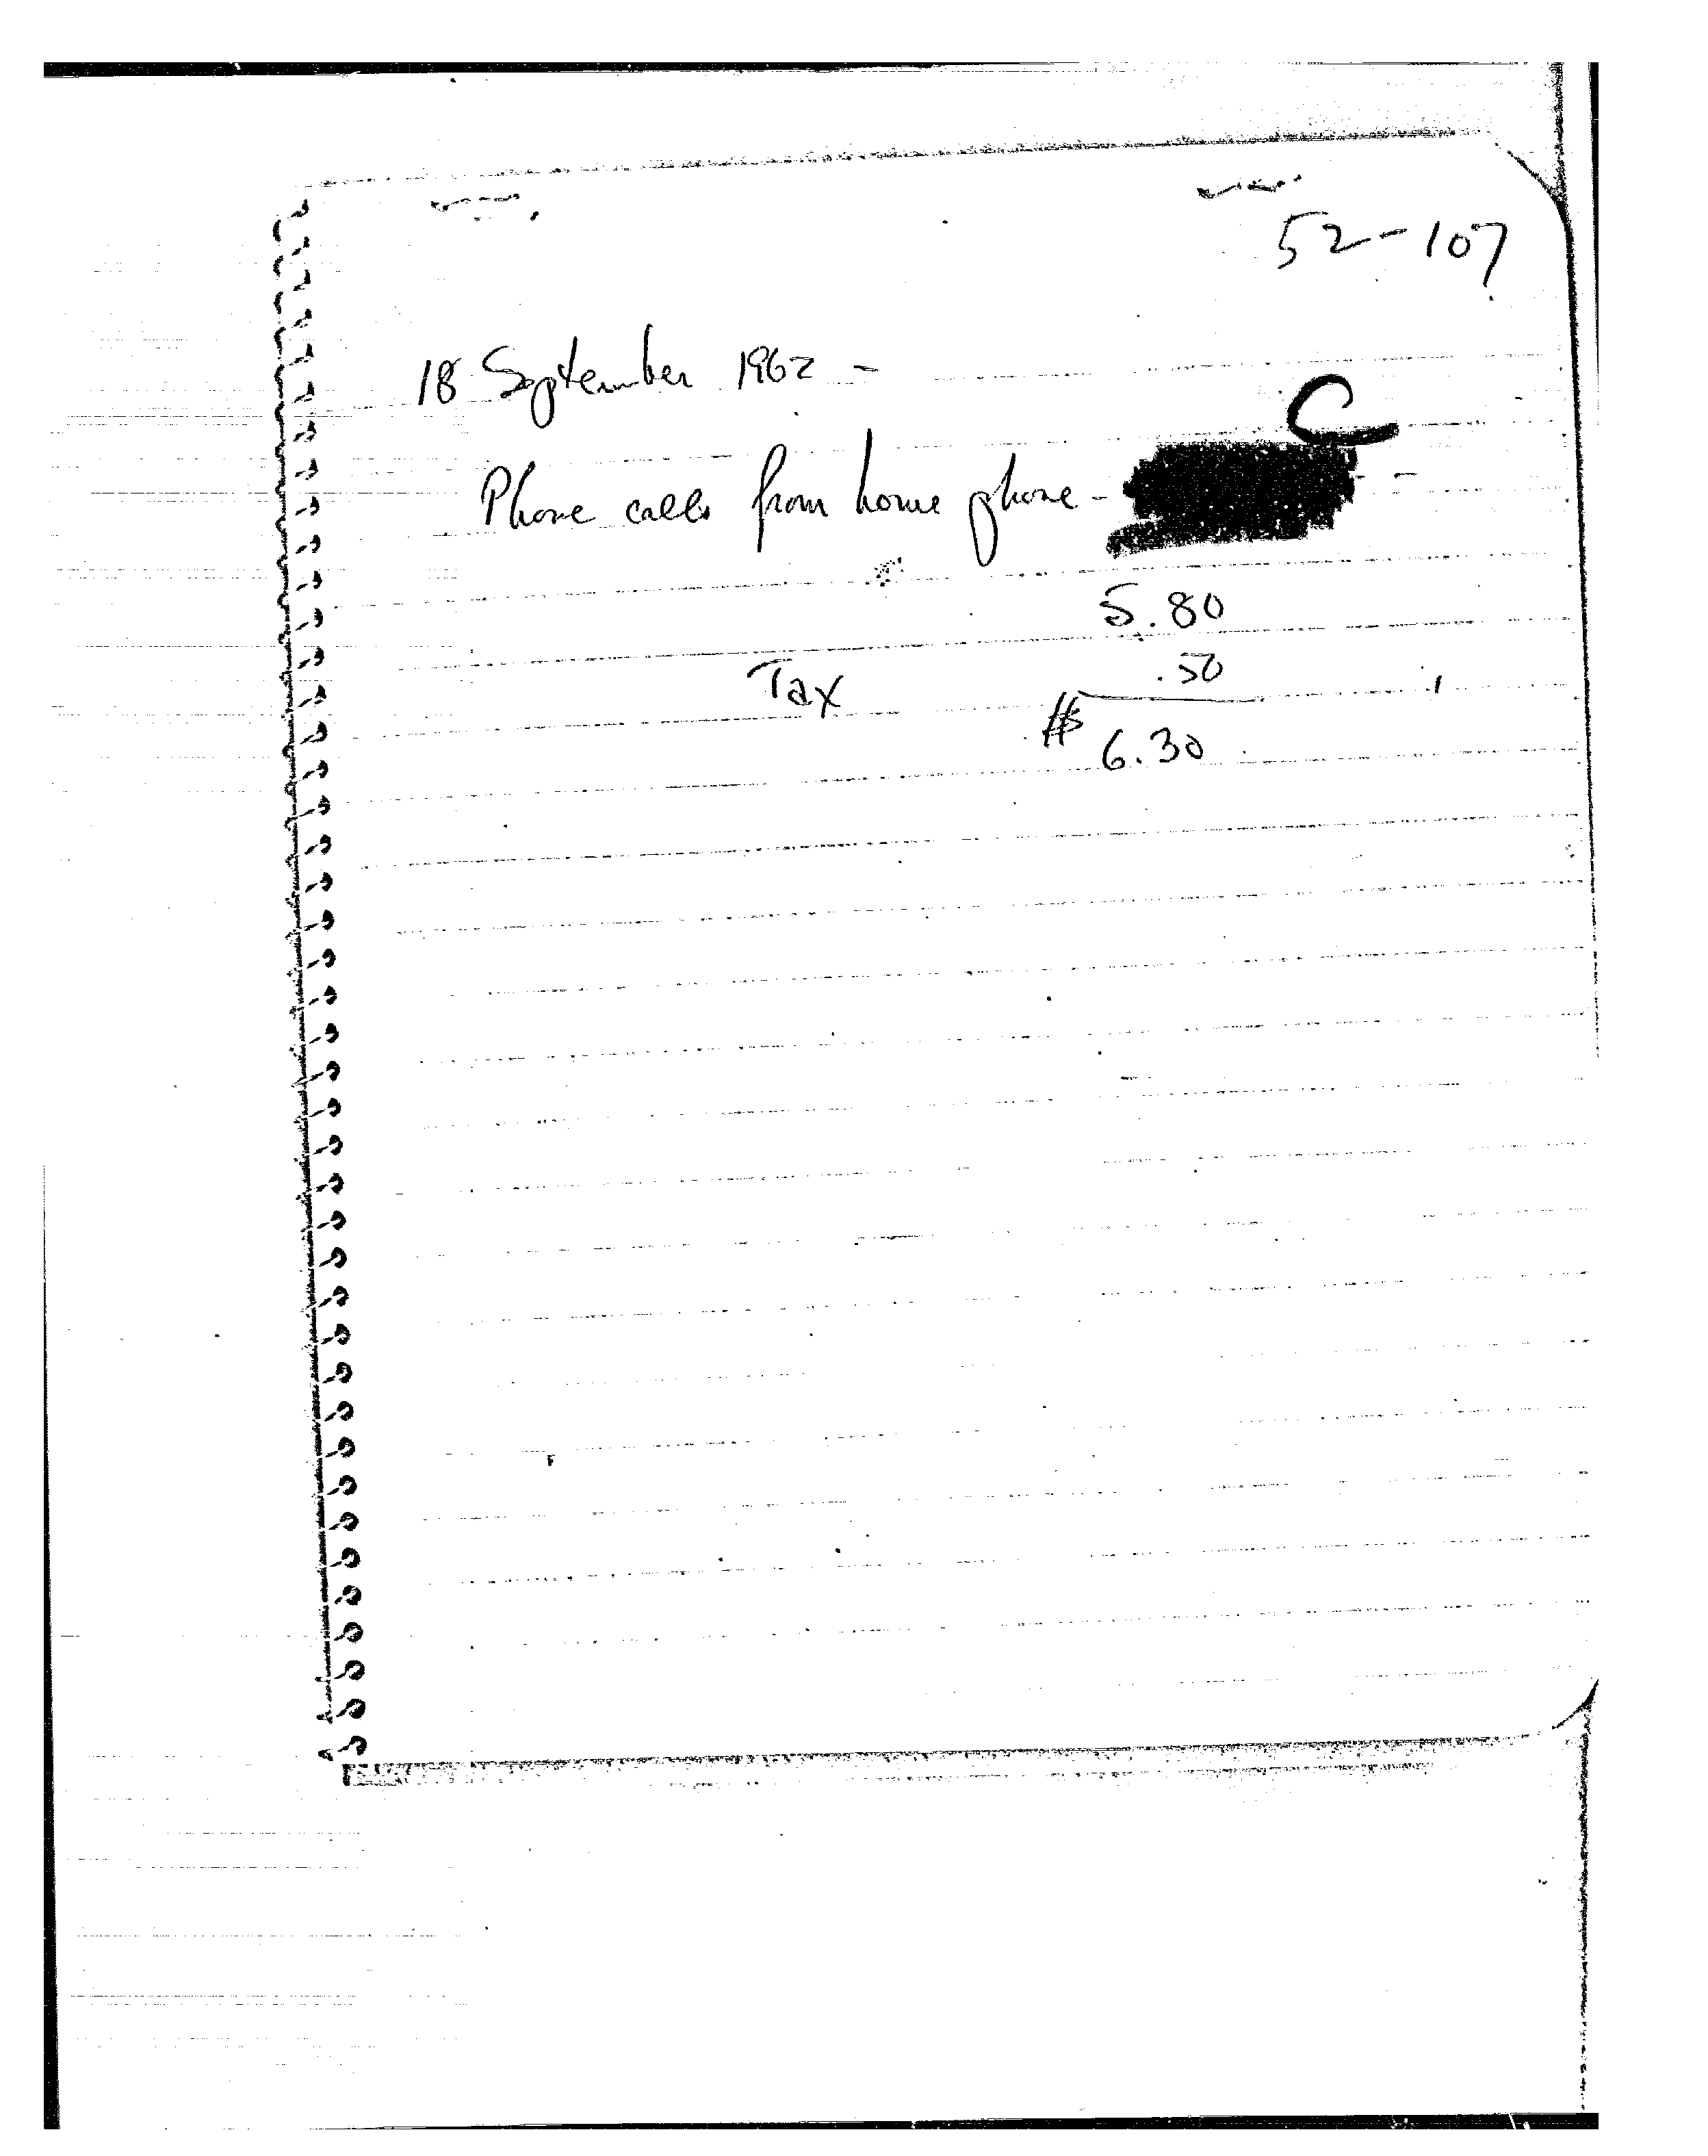 52-107
18 September 1962 -
C
Phone calls from home phone - -
5.80
Tax .50
$ 6.30